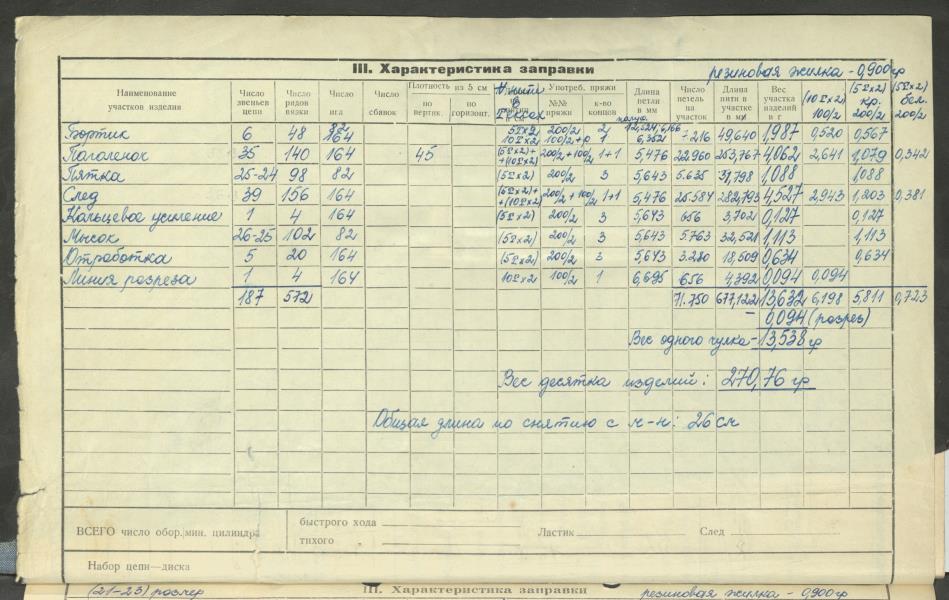 III. Характеристика заправки
резиновая жилка - 0,900 гр
Наименование участков изделия
Число звеньев цепи
Число рядов вязки
Число игл
Число сбавок
Плотность из 5 см
по вертик.
по горизонт.
№ нити в тексах
Употреб. пряжи
№№ пряжи
к-во концов
Длина петли в мм
Число петель на участок
Длина нити в участке в м
Вес участка изделий в г
(10Fх2) 100/2
(5Fх2) кр. 200/2
(5Fх2) бел. 200/2
Бортик 6 48 82 164 5Fх2 10Fх2 200/2 2 6,352 49,640 1,987 0,520 0,567
Паголенок 35 140 164 45 (5Fх2)+ +(10Fх2) 200/2+100/2 1+1 5,476 22.960 253,767 4,062 2,641 1,079 0,342
Пятка 25-24 98 82 (5Fх2) 200/2 3 5,643 5.635 31,798 1,088 1088
След 39 156 164 (5Fх2)+ +(10Fх2) 200/2+100/2 1+1 5,476 25.584 282,793 4,527 2,943 1,203 0,381
Кольцевое усиление 1 4 164 (5Fх2) 200/2 3 5,643 656 3,702 0,127 0,127
Мысок 26-25 102 82 (5Fх2) 200/2 3 5,643 5.763 32,521 1,113 1,113
Отработка 5 20 164 (5Fх2) 200/2 3 5,643 3.280 18,509 0,634 0,634
Линия разреза 1 4 164 10Fх2 100/2 1 6,695 656 4,392 0,094 0,094
187 572 71.750 677,122 13,632 6,198 5,811 0,723
- 0,094 (разрез)
Вес одного чулка - 13,538 гр
Вес десятка изделий: 270,76 гр
Общая длина по снятию с м-н: 26 см
ВСЕГО число обор. мин. цилиндра
быстрого хода
тихого
Ластик
След
Набор цепи—диска
(21-23) размер
III. Характеристика заправки
резиновая жилка - 0,900 гр